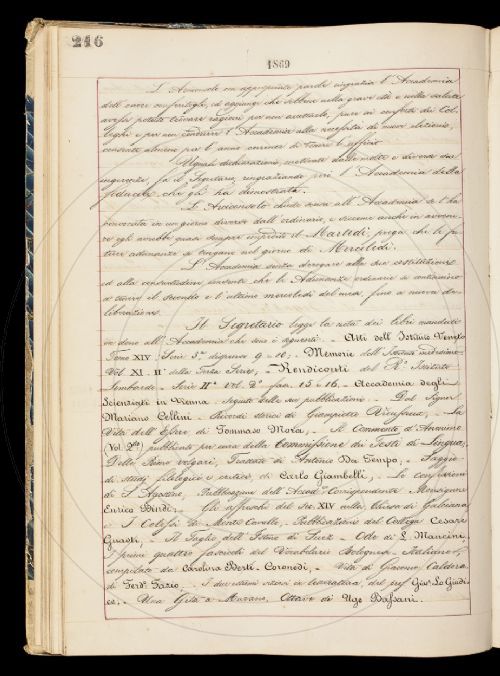 246
1869
L'Arconsolo con appropriate parole ringrazia l'Accademia
dell'onore conferitogli, ed aggiunge che sebbene nella grave età e nella salute
avesse potuto trovare ragioni per non accettarla, pure in conforto dei Col-
leghi e per non condurre l'Accademia alla necessità di nuove elezioni,
consente almeno per l'anno corrente di tenere l'ufficio.
Uguali dichiarazioni, motivate
ingerenze, fa il Segretario, ringraziando però l'Accademia della
fiducia che gli ha dimostrata.
L'Arciconsolo chiede scusa all'Accademia se l'ha
convocata in un giorno diverso dall'ordinario, e siccome anche in avveni-
re egli avrebbe quasi sempre impedito il Martedì, prega che le fu-
ture adunanze si tengano nel giorno di Mercoledì.
L'Accademia senza derogare alle sue costituzioni
ed alla consuetudine consente che le Adunanze ordinarie si continuino
a tenere il secondo e l'ultimo mercoledì del mese, fino a nuova de-
liberazione.
Il Segretario legge la nota dei libri mandati
in dono all'Accademia che sono i seguenti: - Atti dell'Istituto Veneto
Tomo XIV, Serie 3ª dispensa 9 e 10; - Memorie dell'Istituto medesimo
Vol. XI - II della Terza Serie; - Rendiconti del Rº Istituto
Lombardo - Serie IIª Vol. 2º fasc. 15 e 16 - Accademia degli
Scienziati in Vienna - Seguito delle sue pubblicazioni - Dal Signor
Mariano Cellini - Ricordi storici di Giampietro Vieusseux, - La
Vita dell'Esopo di Tommaso Mora, - Il Commento d'Anonimo
(Vol. 2do) pubblicato per cura della Commissione dei Testi di Lingua;
Delle Rime volgari, Trattato di Antonio Da Tempo; - Saggio
di studj filologici e critici, di Carlo Giambelli; - Le confessioni
di S. Agostino, Pubblicazione dell'Accad. Corrispondente Monsignore
Enrico Bindi; - Gli affreschi del sec. XIV nella Chiesa di
e I Codici di Monte Cavallo, Pubblicazioni del Collega Cesare
Guasti, - Il Taglio dell'Istmo di Suez - Ode di L. Mancini,
I primi quattro fascicoli del Vocabolario Bolognese-Italiano,
compilato da Carolina Berti-Coronedi; - Vita di Giacomo Caldora
di Ferdo. Fazio. - I due ultimi in letteratura, del prof. Gius. Lo Giudi-
ce; - Una Gita a Murano, Ottave di Ugo Bassani.